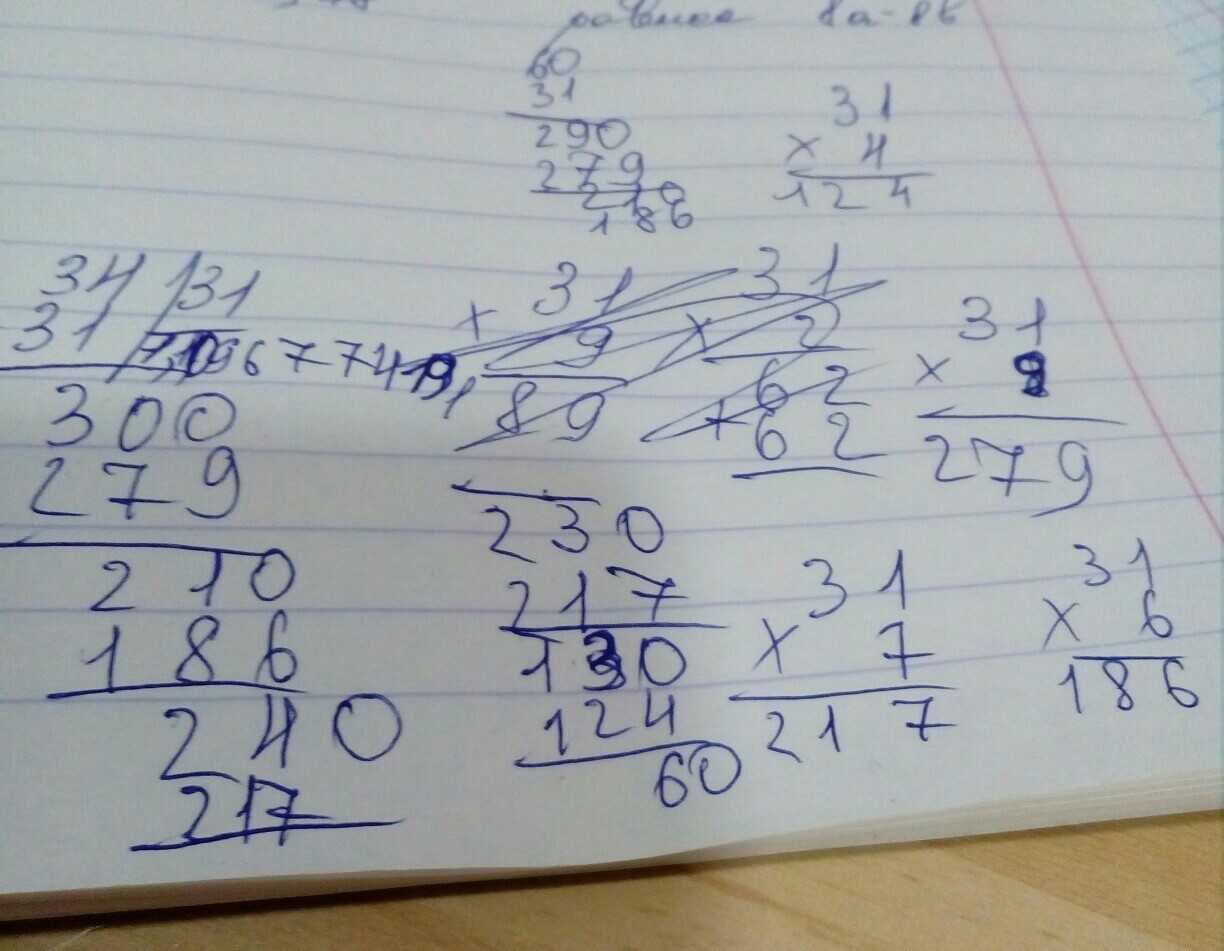 равное 8а-8б
60
31
290
279
210
186
31
× 4
124
34 31
31 1,096774191
300
279
210
186
240
217
× 31
9
89
31
× 2
62
+ 62
31
× 9
279
230
217
130
124
60
31
× 7
217
31
× 6
186